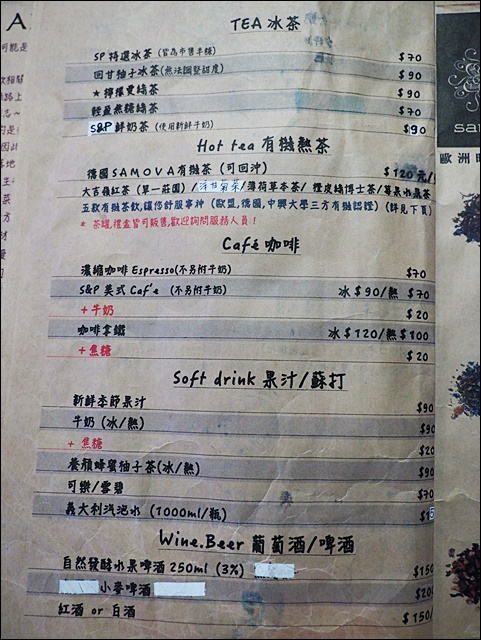 A
TEA 冰茶
SP 特選冰茶 (皆為市售半糖) $70
回甘柚子冰茶 (無法調整甜度) $90
★檸檬覺綠茶 $90
輕盈無糖綠茶 $70
S&P 鮮奶茶 (使用新鮮牛奶) $90
Hot tea 有機熱茶
德國SAMOVA有機茶 (可回沖) $120元/
大吉嶺紅茶 (單一莊園) /洋甘菊茶/薄荷草本茶/ 橙皮綠博士茶/莓果水果茶
五款有機茶飲,讓您舒服事神 (歐盟,德國,中興大學三方有機認證) (詳見下頁)
* 茶罐,禮盒皆可販售,歡迎詢問服務人員!
Café 咖啡
濃縮咖啡 Espresso(不另附牛奶) $70
S&P 美式 Caf'e (不另附牛奶) 冰$90/熱 $70
+牛奶 $20
咖啡拿鐵 冰$120/熱$100
+焦糖 $20
Soft drink 果汁/蘇打
新鮮本節果汁 $90
牛奶 (冰/熱) $90
+ 焦糖 $20
養顏蜂蜜柚子茶(冰/熱) $90
可樂/雪碧 $70
義大利汽泡水 (1000ml/瓶)
Wine.Beer 葡萄酒/啤酒
自然發酵水果啤酒 250ml (3%) $150
小麥啤酒 $200
紅酒 or 白酒 $150/
sa
歐洲